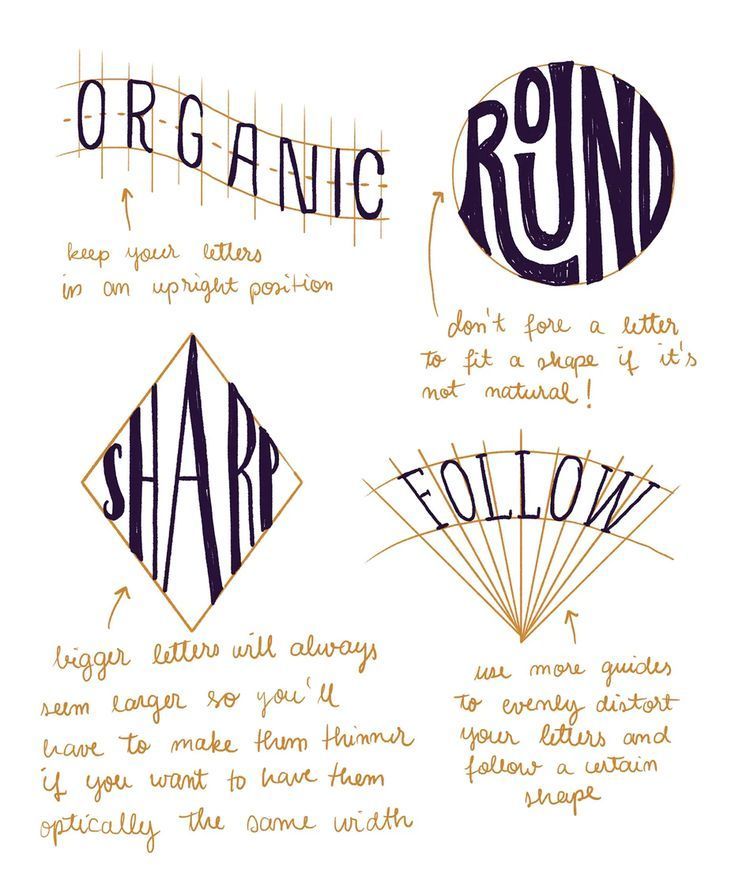 ORGANIC
keep your letters
in an upright position
ROUND
don't fore a letter
to fit a shape if it's
not natural!
SHARP
bigger letters will always
seem larger so you'll
have to make them thinner
if you want to have them
optically the same width
FOLLOW
use more guides
to evenly distort
your letters and
follow a certain
shape